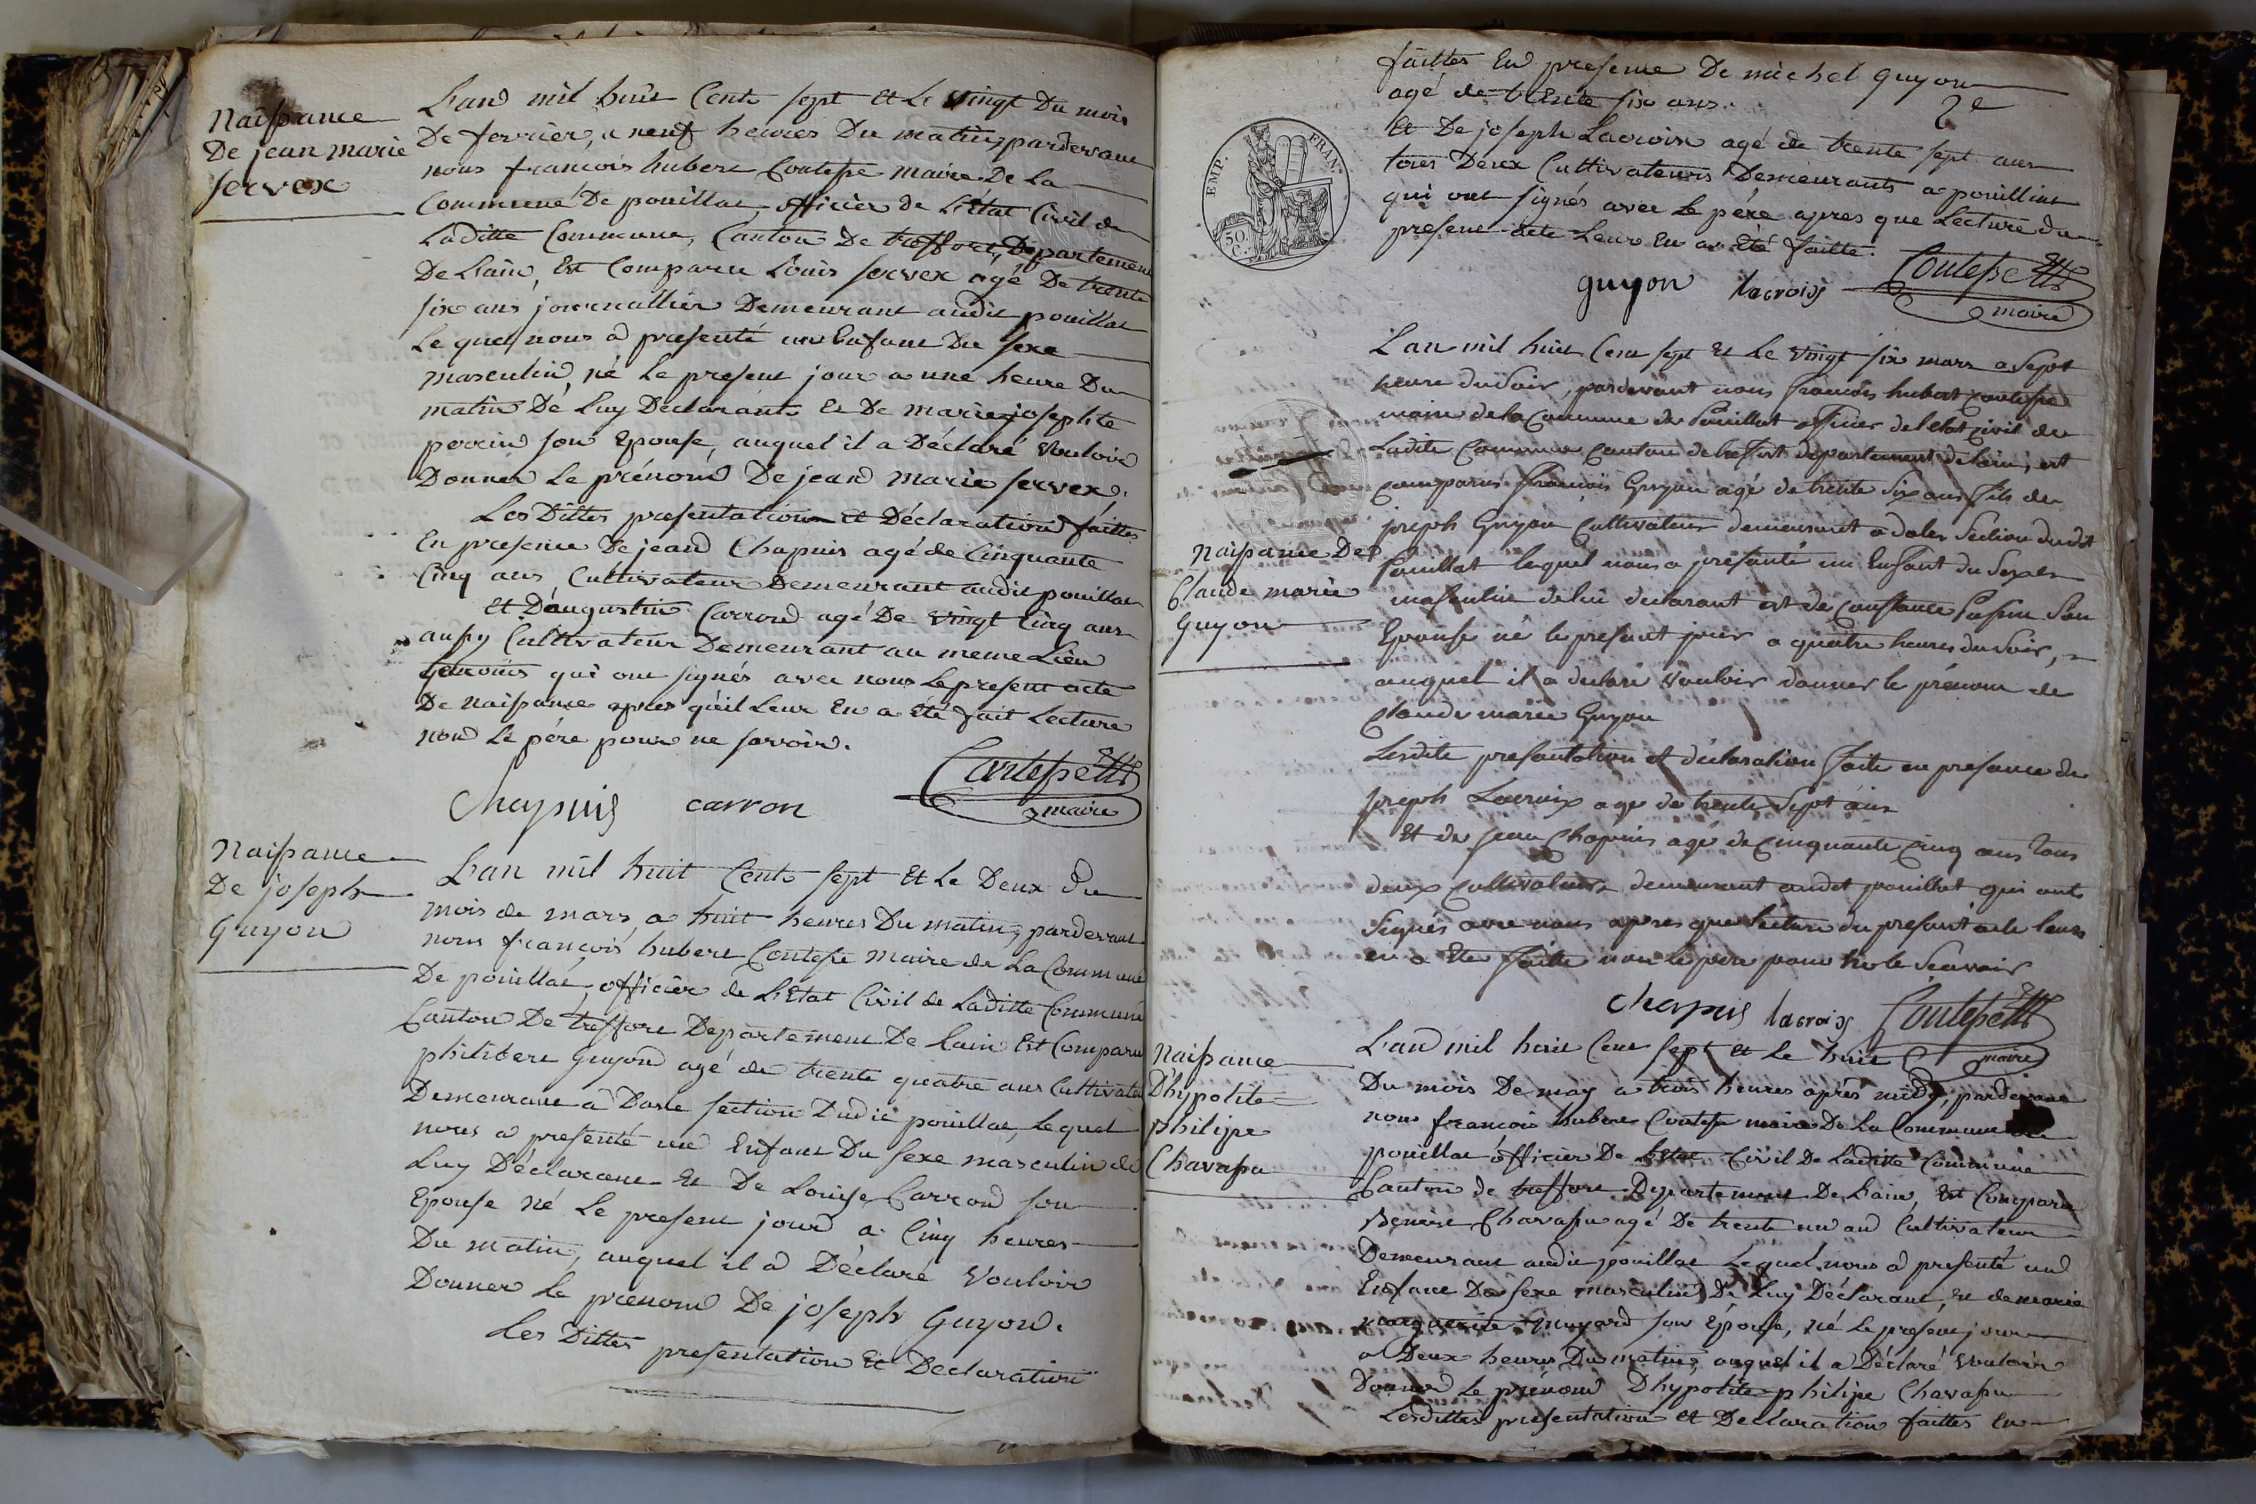 Naissance
De jean marie
servex
L'and mil huit Cents sept et Le vingt Du mois
De fevrier, a neuf heures Du matin, pardevant
nous francois hubert Contesse maire De La
Commune De pouillat, officier de L'état Civil de
Laditte Commune, Canton De treffort, Département
De L'ain, Est Comparu Louis servex agé De trente
six ans journallier Demeurant audit pouillat
Le quel nous a presenté un Enfant Du sexe
masculin, né Le present jour a une heure Du
matin De Luy Déclarant Et De marie josephte
perrin son Epouse, auquel il a Déclaré Vouloir
Donner Le prénom De jean marie servex.
Les Dittes presentation et Déclaration faittes
En presence De jean Chapuis agé de Cinquante
Cinq ans Cultivateur Demeurant audit pouillat
et D'augustin Carrond agé De vingt Cinq ans
aussy Cultivateur Demeurant au meme Lieu
temoins qui ont signés avec nous Le present acte
De Naissance apres qu'il Leur En a été fait Lecture
non Le pére pour ne savoir.
Chapuis carron Contesse
maire
Naissance
De joseph
Guyon
L'an mil huit Cents sept Et Le Deux Du
mois de mars, a huit heures Du matin, pardevant
nous françois hubert Contesse Maire de La Commune
De pouillat, officier de L'Etat Civil de Laditte Commune
Canton De treffort Département De Lain Est Comparu
philibert Guyond agé de trente quatre ans Cultivateur
Demeurant a Dasle section Dudit pouillat, Le quel
nous a presenté un Enfant Du sexe masculin de
Luy Déclarant Et De Louise Carrond son
Epouse né Le present jour a Cinq heures
Du matin, auquel il a Déclaré Vouloir
Donner Le prenom De joseph Guyond.
Les Dittes presentation Et Declaration
faittes En presence De michel guyon
agé de trente six ans.
2e
Et De joseph Lacroix agé de trente sept ans
tous Deux Cultivateurs Demeurants a pouillat
qui ont signés avec Le pére apres que Lecture du
present acte Leur En a Eté faitte.
EMP. FRAN.
50.
C.
guyon lacroix Contesse
maire
L'an mil huit Cent sept Et Le vingt six mars a Sept
heure du Soir, pardevant nous françois hubert Contesse
maire de la Commune de Pouillat officier de l'etat civil de
Ladite Commune Canton de treffort departement de lain, est
comparus françois Guyon agé de trente six ans fils de
joseph Guyon Cultivateur demeurant a dales Section dudit
Pouillat lequel nous a présenté un Enfant du Sexe
masculin de lui declarant et de Constance son
Epouse né le present jour a quatre heures du Soir,
auquel il a declaré Vouloir donner le prénom de
Claude marie Guyon
Naissance De
Claude marie
Guyon
Lesdite presantation et déclaration faite en presance de
joseph Lacroix agé de trente Sept ans
Et de jean Chapuis agé de cinquante cinq ans tous
deux cultivateurs demeurant audit pouillat qui ont
Signés avec nous apres que lecture du presant acte leurs
en a Ete faite non le pere pour ne le Scavoir
chapuis lacroix Contesse
maire
Naissance
D'hypolite
philipe
Chavassu
L'and mil huit Cent sept et Le huit
Du mois De may a trois heures aprés midy, pardevant
nous francois hubert Contesse maire De La Commune de
pouillat officier De Létat Civil De Laditte Commune
Canton de treffort Departement De Lain, Est Comparu
Benoit Chavassu agé De trente un and Cultivateur
Demeurant audit pouillat Le quel nous a presenté und
Enfant Du sexe masculin De Luy Déclarant, et de marie
marguerite son Epouse, né Le present jour
a Deux heures Du matin, auquel il a Déclaré Vouloir
Donner Le prénom D'hypolite philipe Chavassu
Lesdittes presentation et Declaration faittes En